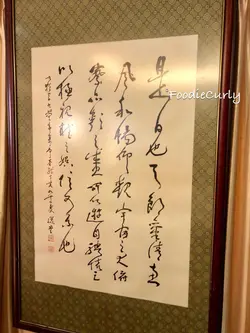 FoodieCurly
是日也天朗氣清惠
風和暢仰觀宇宙之大俯
察品類之盛所以遊目騁懷足
以極視聽之娛信可樂也
選堂